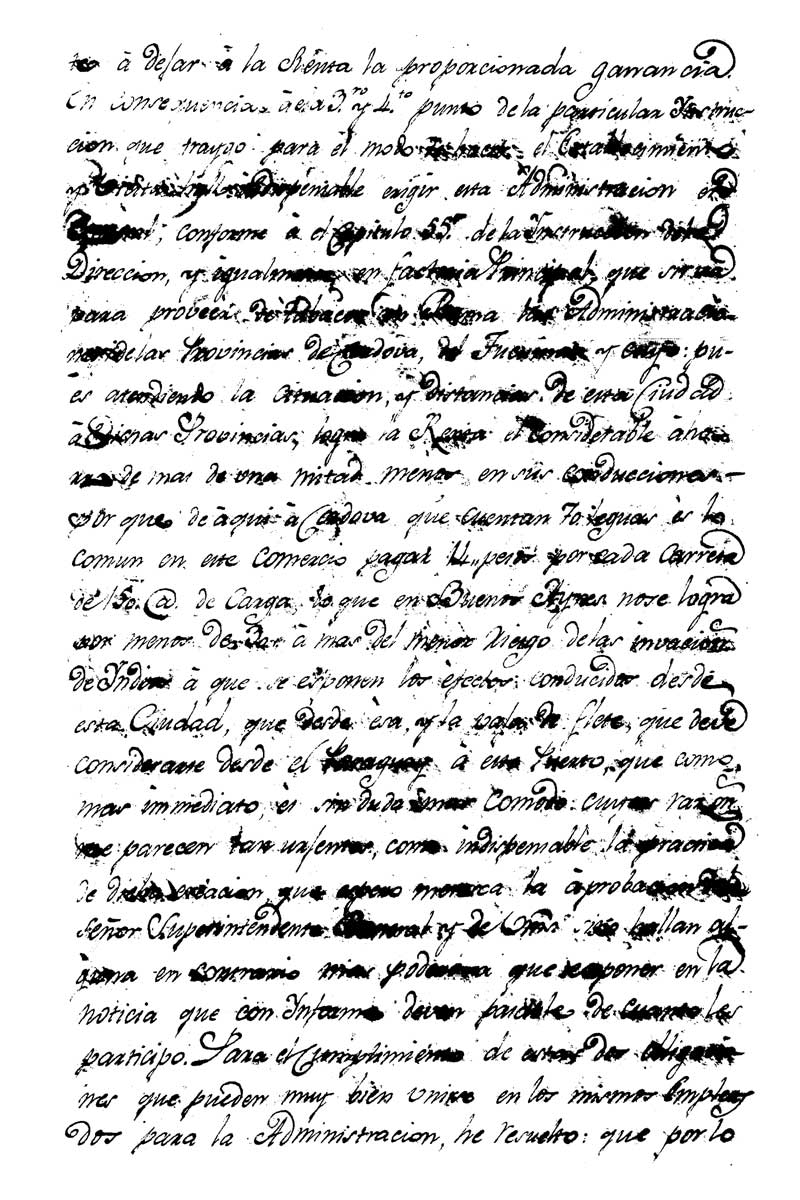 to à dejar à la Renta la proporcionada ganancia.
En consequencia à el 3.ro y 4.to punto de la particular Ynstruc-
cion que traygo para el modo de hacer el Establecimiento
indispensable erigir esta Administracion en
General, conforme à el Capitulo 55 de la Instruccion de la
Direccion, y igualmente en factoria Principal, que sirva
para probeer de tabaco en Rama las Administracio-
nes de las Provincias de Cordova, del Tucuman y Cuyo: pu-
es atendiendo la situacion, y distancias de esta Ciudad
à dichas Provincias, logra la Renta el considerable àhor-
ro de mas de una mitad menos en sus conducciones
por que de àqui à Cordova que cuentan 70 leguas es lo
comun en este Comercio pagar 14 pesos por cada Carreta
de 150 @ de Carga, lo que en Buenos Ayres no se logra
por menos de à mas del menor riesgo de las invacion.s
de Yndios à que se esponen los èfectos conducidos desde
esta Ciudad, que desde èsa, y la vaja de flete, que deve
considerarse desde el Paraguay à este Puerto, que como
mas immediato, es sin duda mas Comodo: cuyas razon.s
me parecen tan urjentes, como indispensable la practica
de dicha creacion, que espero meresca la àprobacion del
Señor Superintendente General y de Vms si no hallan al-
guna en contrario mas poderosa que exponer en la
noticia que con Ynforme deven pasarle de cuanto les
participo. Para el Cumplimiento de estas dos obligacio-
nes que pueden muy bien unirse en los mismos Emplea-
dos para la Administracion, he resuelto: que por lo